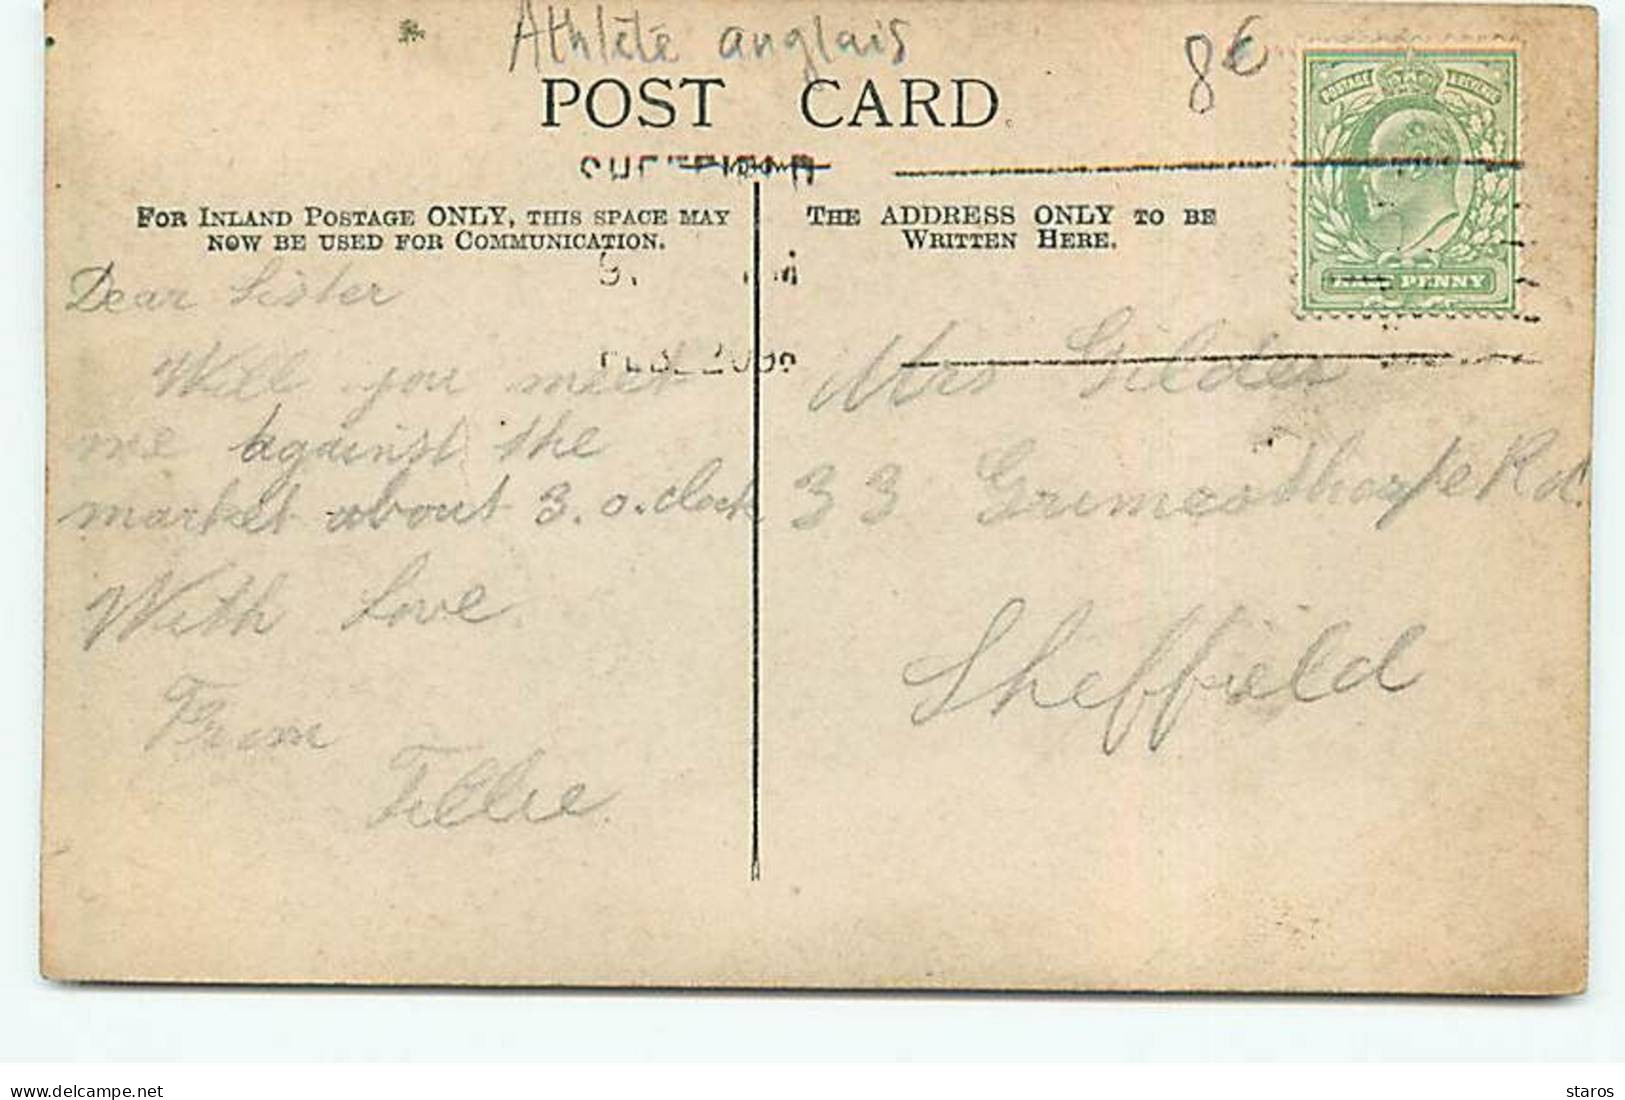 Athlète anglais
8€
POST CARD
POSTAGE REVENUE
HALF PENNY
FOR INLAND POSTAGE ONLY, THIS SPACE MAY
NOW BE USED FOR COMMUNICATION.
THE ADDRESS ONLY TO BE
WRITTEN HERE.
Dear Sister
Will you meet
me against the
market about 3.o.clock
With Love
From
Tillie
Mrs Gildes
33 Grimesthorpe Rd.
Sheffield
delcampe.net
staros